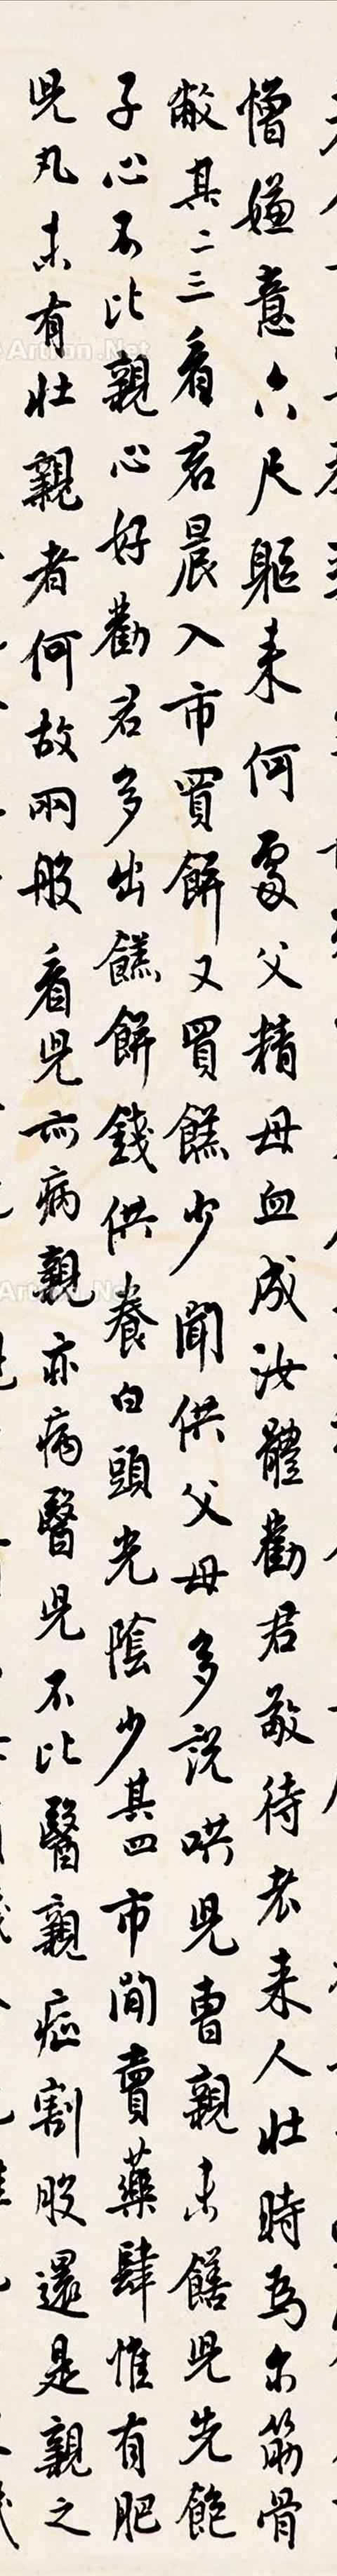 憎嫌意六尺軀来何處父精母血成汝體勸君敬待老来人壯時為尔筋骨
敝其二三看君晨入市買餅又買餻少聞供父母多説哄児曹親未饍児先飽
子心不比親心好勸君多出餻餅錢供養白頭光陰少其四市間賣藥肆惟有肥
児丸未有壯親者何故兩般看児亦病親亦病醫児不比醫親症割股還是親之
Artron.Net
Artron.Net